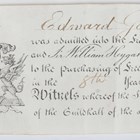 Edward
was admitted into the
and Sir William
to the purchasing of
in the 8th Year
Witness whereof the
of the Guildhall of the